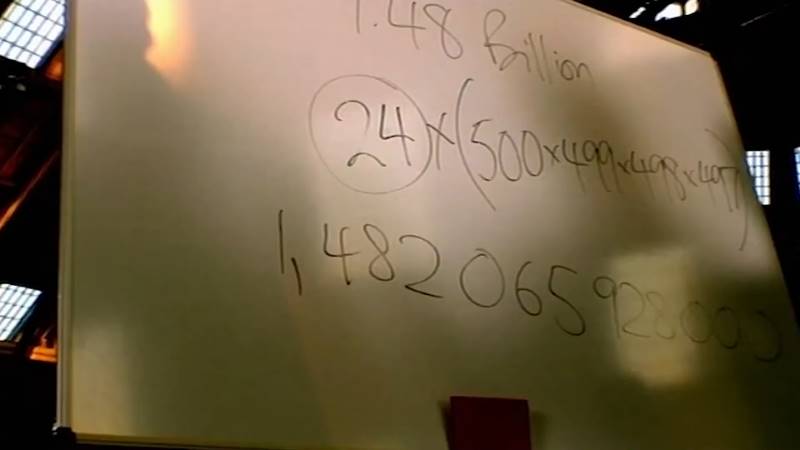 1.48 Billion
24 × (500×499×498×497)
1,482065928000